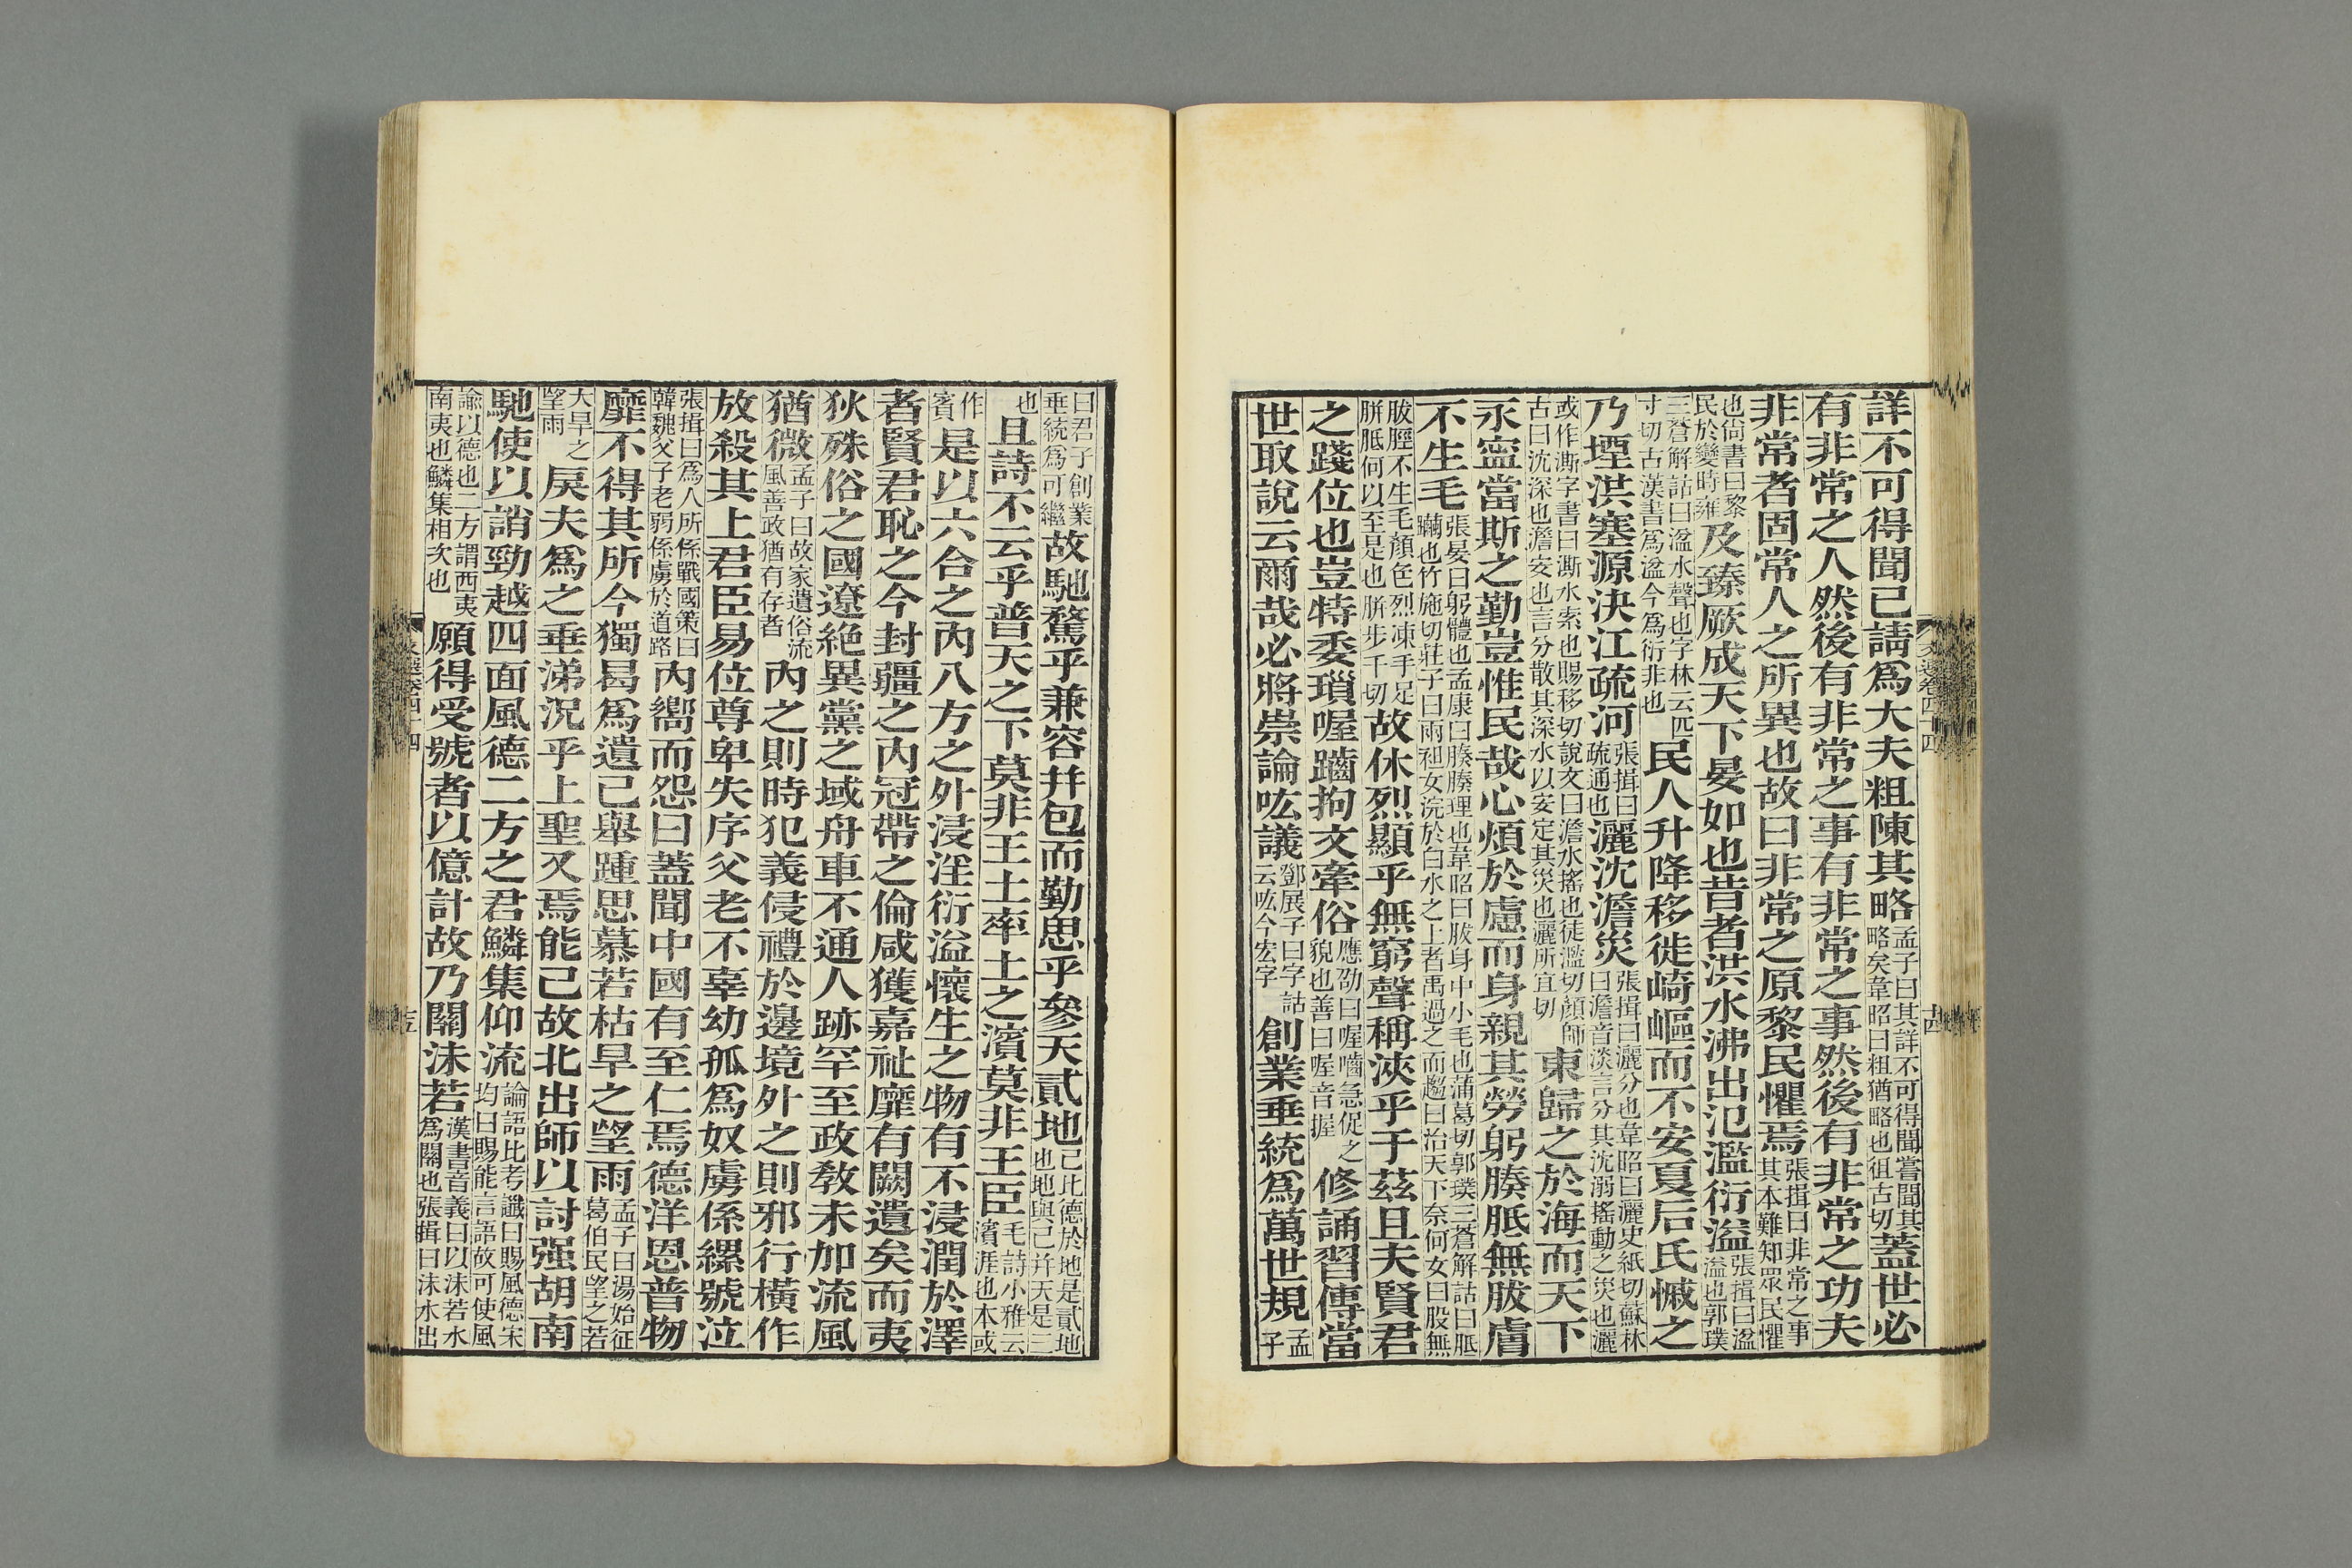 詳不可得聞已請爲大夫粗陳其略孟子曰其詳不可得聞嘗聞其略矣韋昭曰粗猶略也徂古切蓋世必
有非常之人然後有非常之事有非常之事然後有非常之功夫
非常者固常人之所異也故曰非常之原黎民懼焉張揖曰非常之事其本難知眾民懼
也尙書曰黎民於變時雍及臻厥成天下晏如也昔者洪水沸出氾濫衍溢張揖曰湓溢也郭璞
三蒼解詁曰湓水聲也字林云匹寸切古漢書爲湓今爲衍非也民人升降移徙崎嶇而不安夏后氏慽之
乃堙洪塞源決江疏河張揖曰疏通也灑沈澹災張揖曰灑分也韋昭曰灑史紙切蘇林曰澹音淡言分其沈溺搖動之災也灑
或作澌字書曰澌水索也賜移切說文曰澹水搖也徒濫切顔師古曰沈深也澹安也言分散其深水以安定其災也灑所宜切東歸之於海而天下
永寧當斯之勤豈惟民哉心煩於慮而身親其勞躬腠胝無胈膚
不生毛張晏曰躬體也孟康曰腠腠理也韋昭曰胈身中小毛也蒲葛切郭璞三蒼解詁曰胝也竹施切莊子曰兩袒女浣於白水之上者禹過之而趨曰治天下奈何女曰股無
胈脛不生毛顏色烈凍手足胼胝何以至是也胼步千切故休烈顯乎無窮聲稱浹乎于茲且夫賢君
之踐位也豈特委瑣喔齪拘文牽俗應劭曰喔齪急促之貌也善曰喔音握修誦習傳當
世取說云爾哉必將崇論吰議鄧展子曰字詁云吰今宏字創業垂統爲萬世規孟子
文選卷四十四
十四
曰君子創業垂統爲可繼也故馳騖乎兼容幷包而勤思乎參天貳地己比德於地是貳地也地與己幷天是三
也且詩不云乎普天之下莫非王土率土之濱莫非王臣毛詩小雅云濱涯也本或
作賓是以六合之內八方之外浸淫衍溢懷生之物有不浸潤於澤
者賢君恥之今封疆之內冠帶之倫咸獲嘉祉靡有闕遺矣而夷
狄殊俗之國遼絕異黨之域舟車不通人跡罕至政敎未加流風
猶微孟子曰故家遺俗流風善政猶有存者內之則時犯義侵禮於邊境外之則邪行橫作
放殺其上君臣易位尊卑失序父老不辜幼孤爲奴虜係縲號泣
張揖曰爲人所係戰國策曰韓魏父子老弱係虜於道路內嚮而怨曰蓋聞中國有至仁焉德洋恩普物
靡不得其所今獨曷爲遺己舉踵思慕若枯旱之望雨孟子曰湯始征葛伯民望之若
大旱之望雨戾夫爲之垂涕況乎上聖又焉能已故北出師以討强胡南
馳使以誚勁越四面風德二方之君鱗集仰流論語比考讖曰賜風德宋均曰賜能言語故可使風
諭以德也二方謂西夷南夷也鱗集相次也願得受號者以億計故乃關沬若漢書音義曰以沬若水爲關也張揖曰沬水出
文選卷四十四
十五